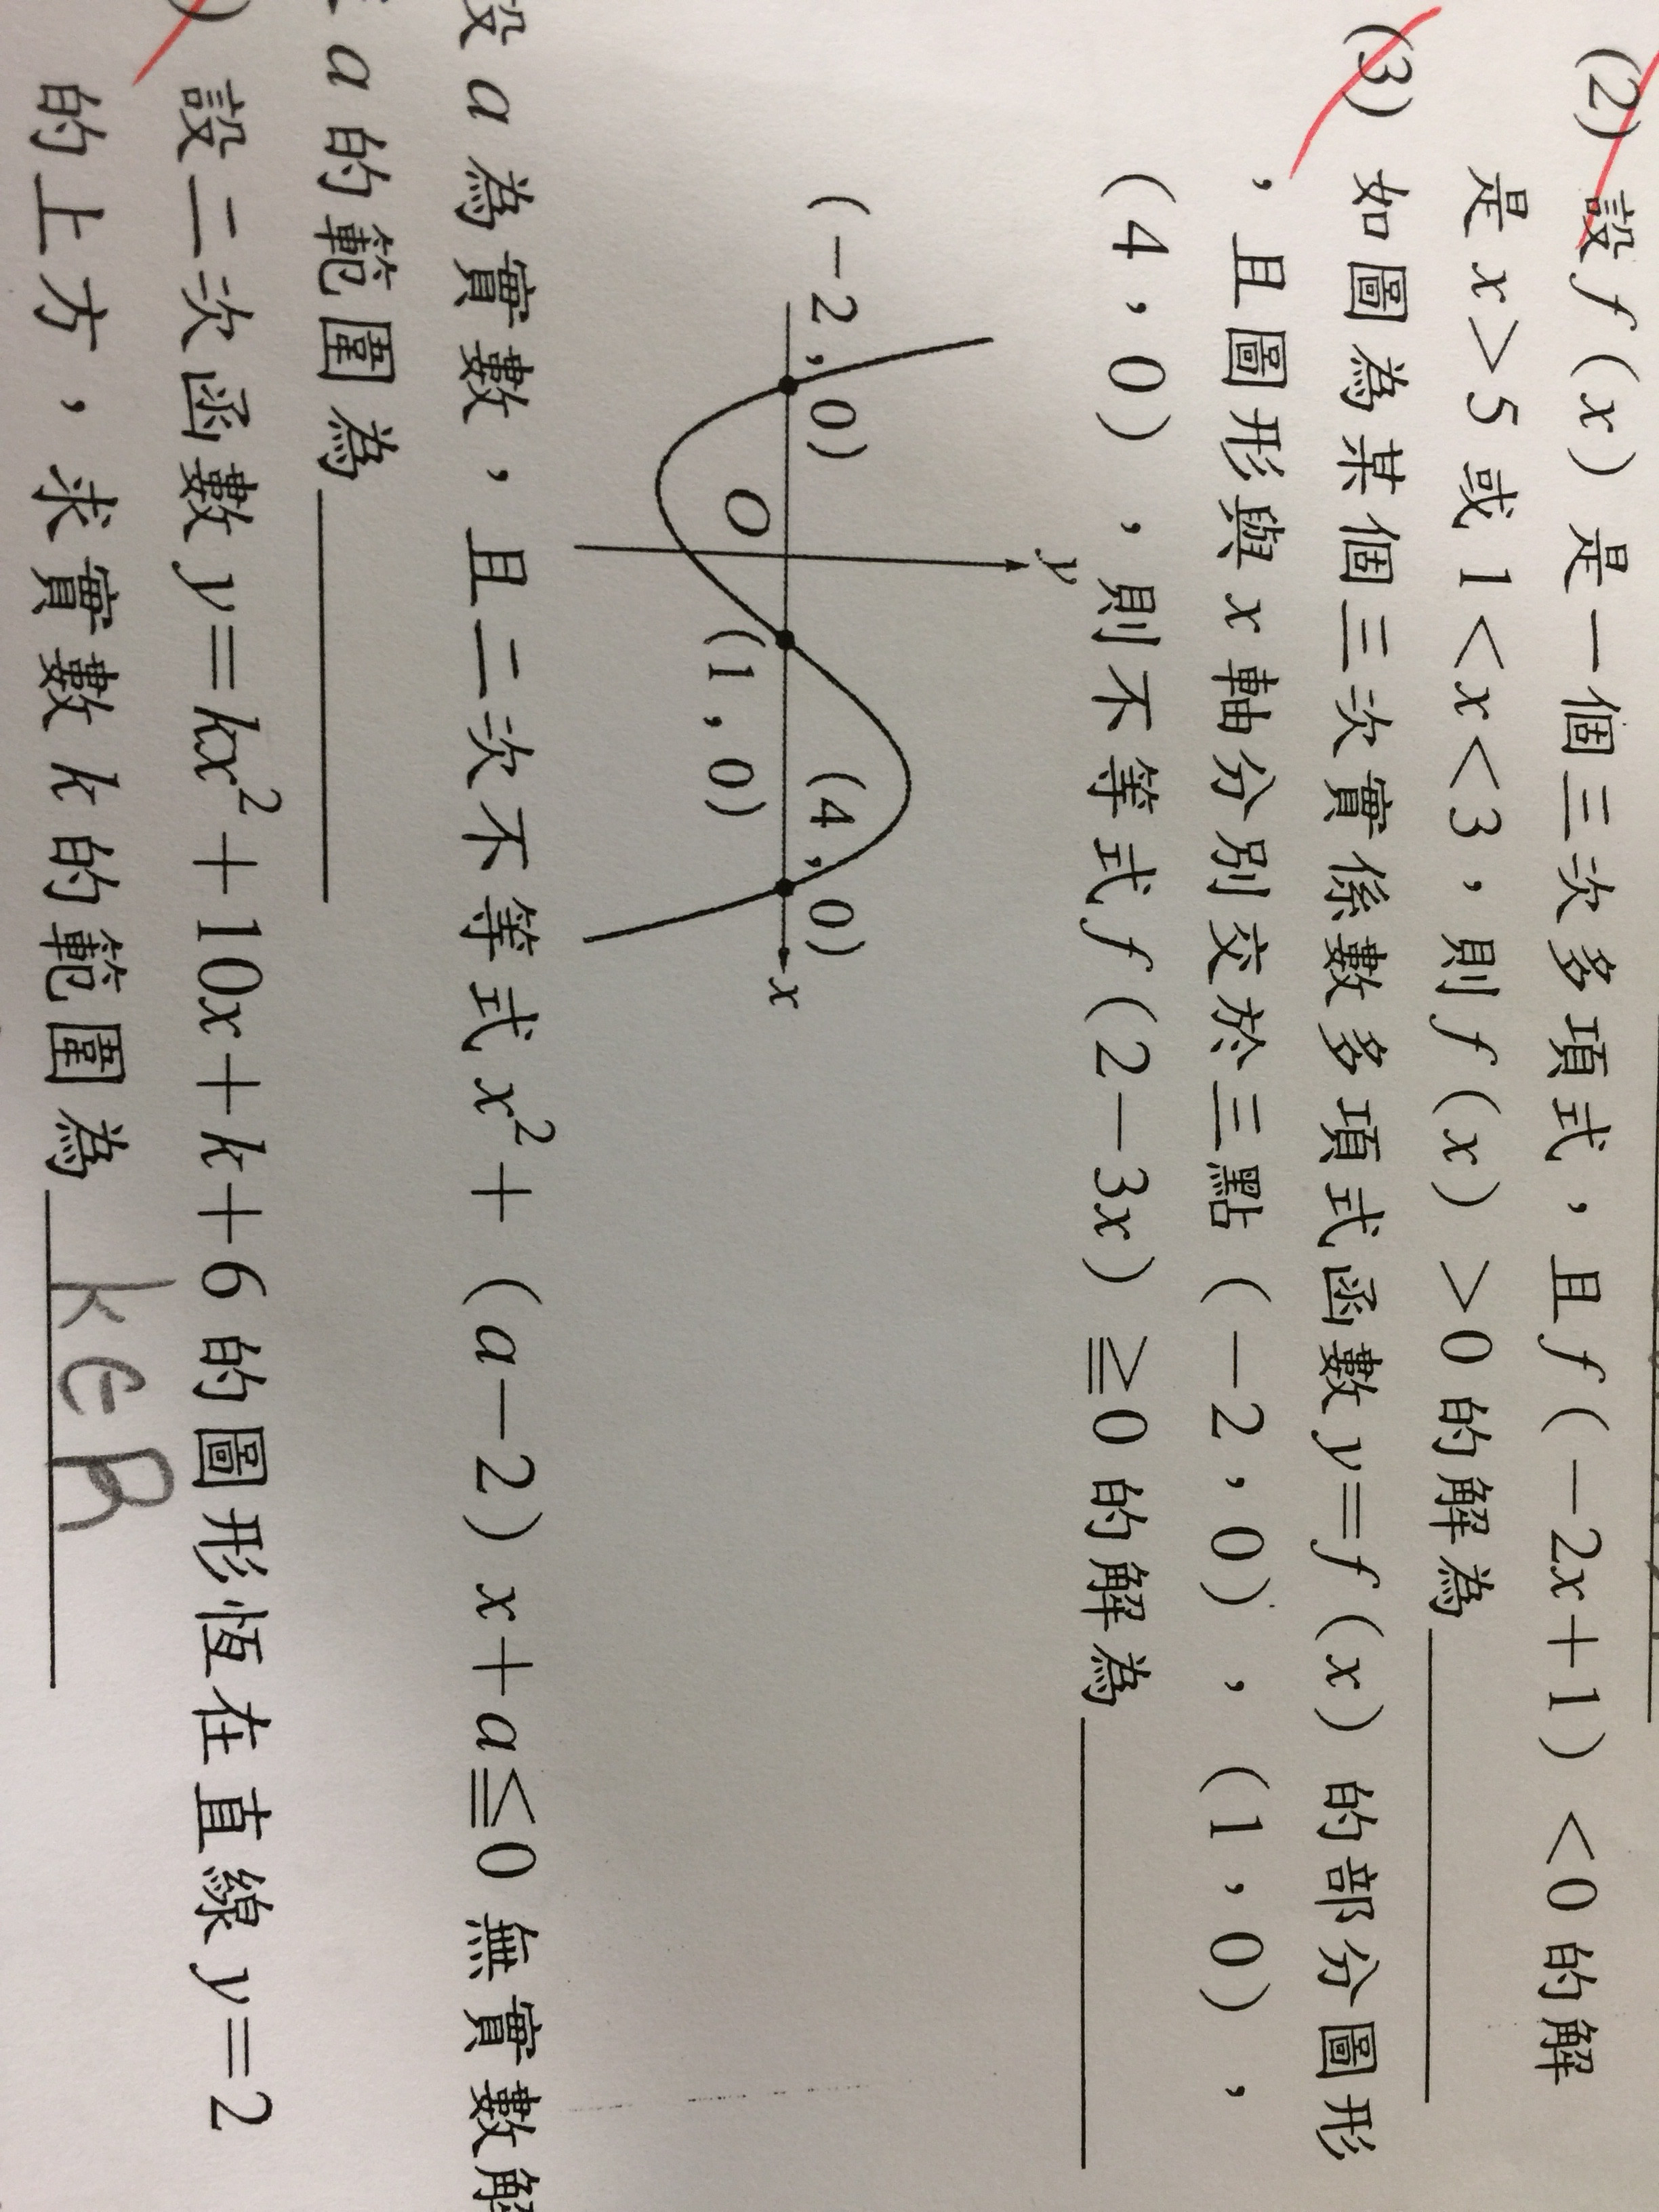 (2) 設f(x)是一個三次多項式,且f(-2x+1)<0的解
是x>5或1<x<3,則f(x)>0的解為
(3) 如圖為某個三次實係數多項式函數y=f(x)的部分圖形
,且圖形與x軸分別交於三點(-2,0),(1,0),
(4,0),則不等式f(2-3x)≧0的解為
y
(-2,0)
(4,0)
x
O
(1,0)
設a為實數,且二次不等式x²+(a-2)x+a≦0無實數解
a的範圍為
) 設二次函數y=kx²+10x+k+6的圖形恆在直線y=2
的上方,求實數k的範圍為 k∈R